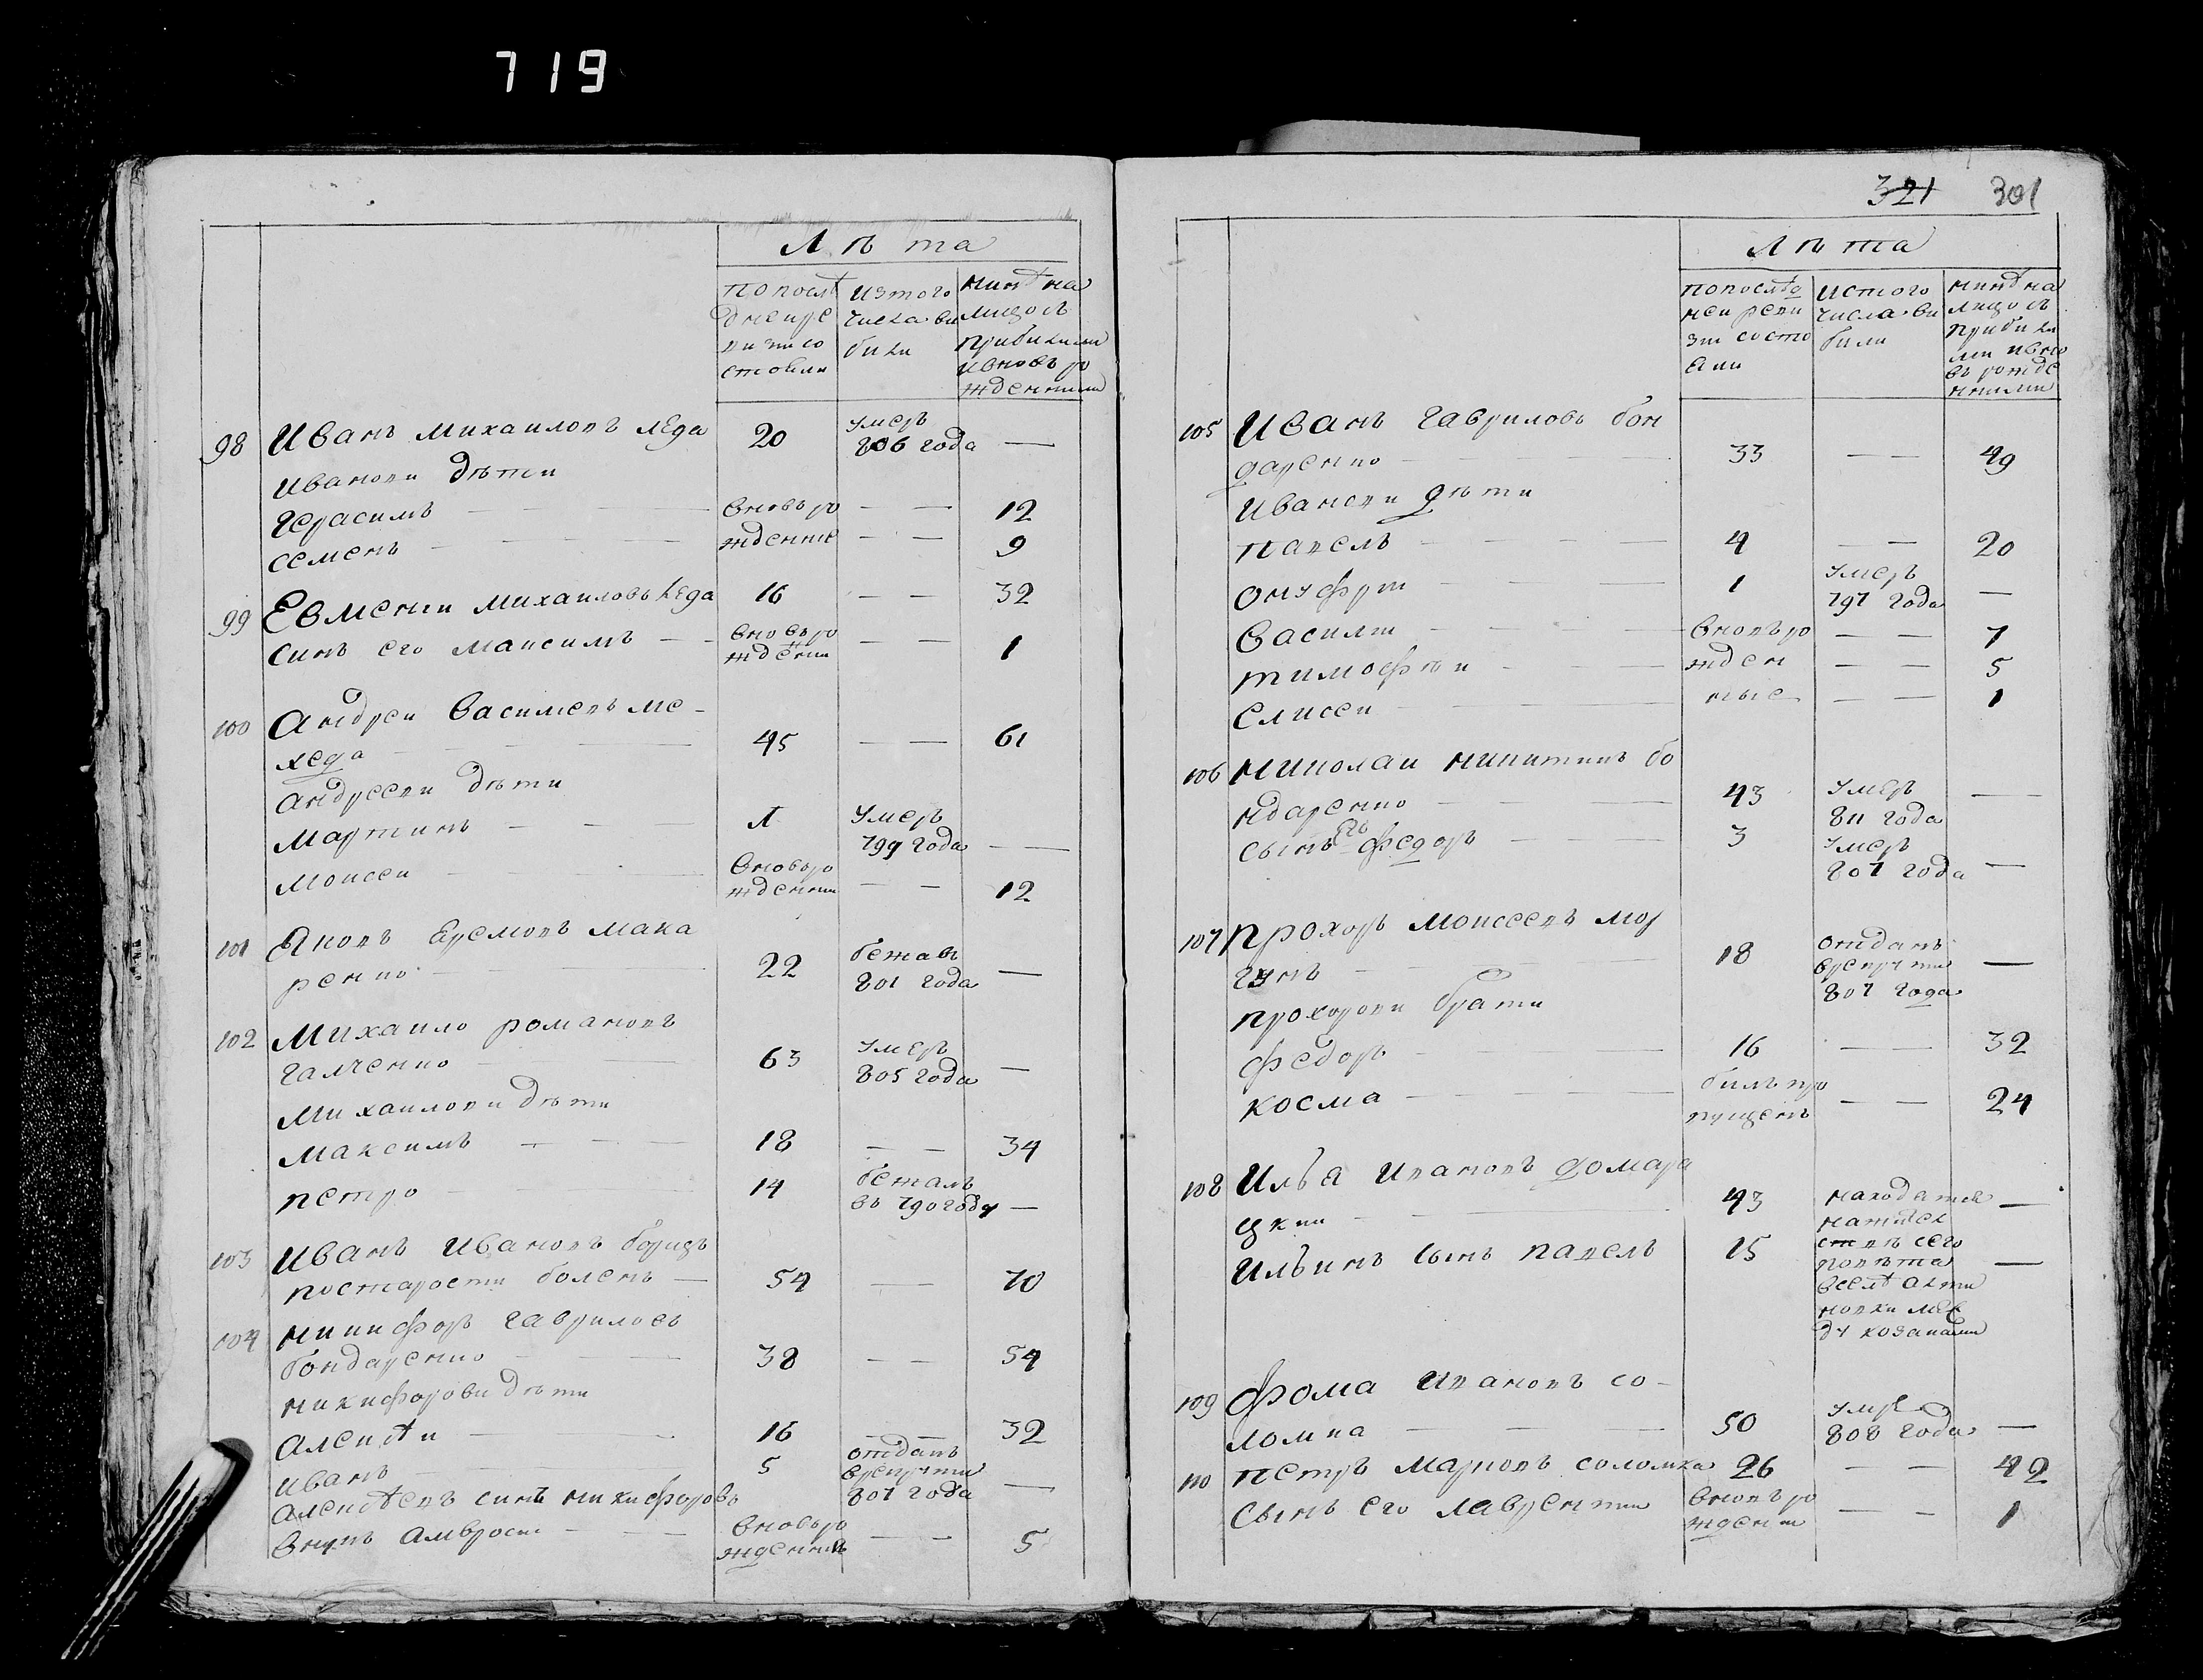 719
Лѣта
по послѣ
дней ре
визи со
стояли
изтого
числа ви
били
нинѣ на
лицо съ
прибилими
и вновь ро
жденними
98 Иванъ Михаиловъ Леда 20 умеръ
806 года —
Иванови дѣти
Герасимъ — вновъ ро — — 12
Семенъ — жденние — — 9
99 Евмении Михаиловъ Леда 16 — — 32
Синъ его Максимъ — — вновъ ро
ждении — — 1
100 Андреи Василиевъ Ме-
хеда — 45 — — 61
Андреови дѣти
Мартинъ — — умеръ
799 года — —
Моисеи — вновъ ро
жденни — — 12
101 Яковъ Еремовъ Мака
ренко — 22 бежавъ
801 года —
102 Михаило Романовъ
Галченко — 63 умеръ
805 года —
Михаилови дѣти
Максимъ — 18 — — 34
Петро — 14 бежалъ
въ 790 году —
103 Иванъ Ивановъ Борицъ
по старости боленъ — 54 — 70
104 Никифоръ Гавриловъ
Бондаренко — 38 — — 54
Никифорови дѣти
Алексѣи — 16 — — 32
Иванъ — 5 отданъ
врекрути
807 года —
Алексѣевъ синъ Никифоровъ
внукъ Амвросии — вновъ ро
жденний — — 5
321 301
Лѣта
по послѣд
ней реви
зии состо
яли
истого
числа ви
били
нинѣ на
лицо съ
прибили
ми и вно
въ рожде
нними
105 Иванъ Гавриловъ Бон
даренко — 33 — — 49
Иванови дѣти
Павелъ — 4 — — 20
Онуфрии — 1 умеръ
797 года —
Василии — вновъ ро — — 7
Тимофѣи — жден — — 5
Елисеи — ные — — 1
106 Николаи Никитинъ Бо
ндаренко — 43 умеръ
811 года —
Сынъ его Федоръ — 3 умеръ
807 года —
107 Прохоръ Моисеевъ Мор
гунъ — 18 отданъ
врекрути
807 года —
Прохорови брати
Федоръ — 16 — 32
Косма — билъ про
пущенъ — — 24
108 Илья Ивановъ Домара
цкии — 43 находятся —
Ильинъ сынъ Павелъ 15 —
ствѣ сего
повѣта
вселѣ
между козаками
109 Фома Ивановъ Со-
ломка — 50 умре
808 года —
110 Петръ Марковъ Соломка 26 — — 42
Сынъ его Лаврентии вновъ ро
ждении — — 1